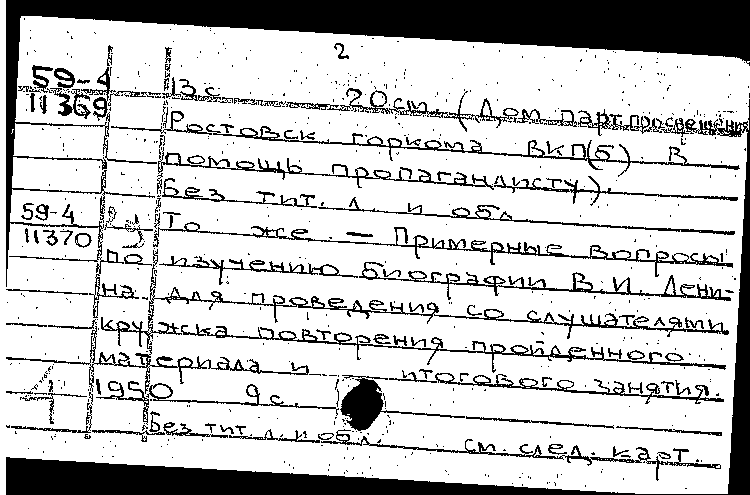 2
59-4
11369
13 с 20 см. (Дом партпросвещения
Ростовск. горкома ВКП(б) В
помощь пропагандисту).
Без тит. л. и обл.
59-4
11370
То же. — Примерные вопросы
по изучению биографии В. И. Лени-
на для проведения со слушателями
кружка повторения пройденного
материала и итогового занятия.
1950 9 с.
Без тит. л. и обл. см. след. карт.
4